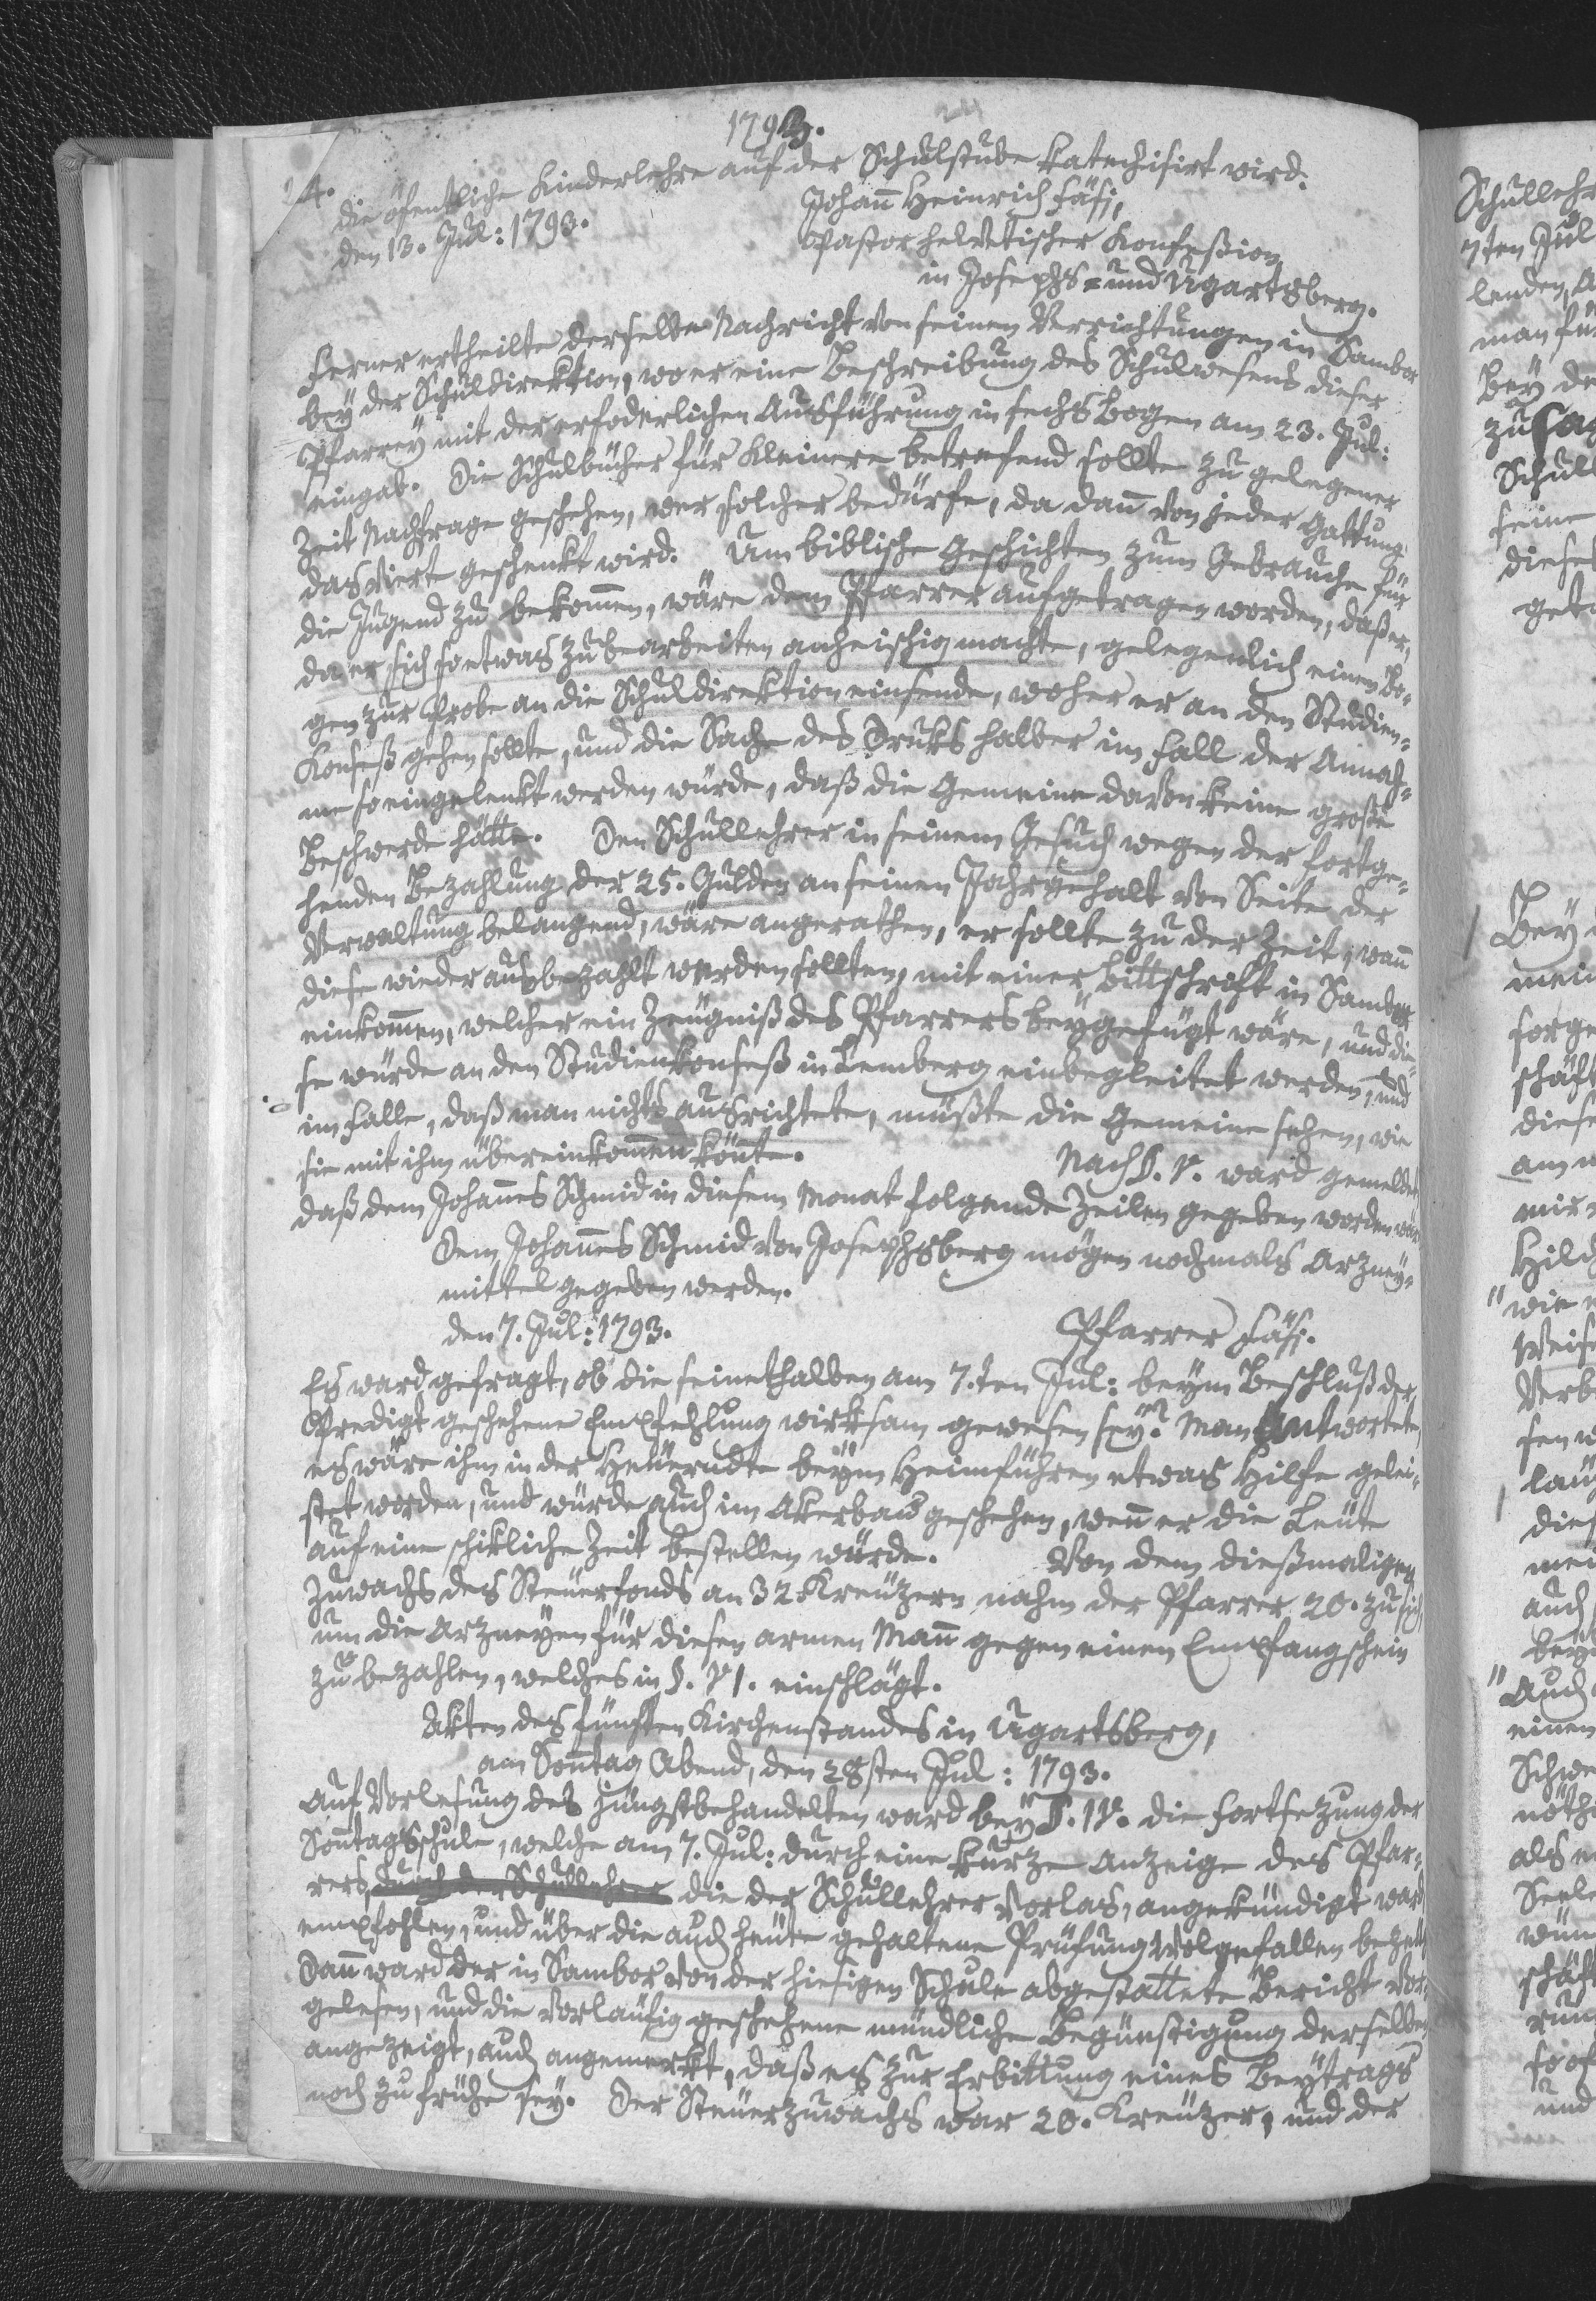 1793.
24.
die öfentliche Kinderlehre auf der Schulstube katechisirt wird.
den 13. Jul: 1793.
Johann Heinrich Fäsi,
Pastor helvetischer Konfeßion
in Josephs= und Ugartsberg.
Ferner ertheilte derselbe Nachricht von seinen Verrichtungen in Sambor
bey der Schuldirektion, wo er eine Beschreibung des Schulwesens dieser
Pfarrey mit der erfoderlichen Ausführung in sechs Bogen am 23. Jul:
eingab. Die Schulbücher für Kleinere betrefend sollte zu gelegener
Zeit Nachfrage geschehen, wer solcher bedürfe, da dann von jeder Gattung
das vierte geschenkt wird. Um biblische Geschichten zum Gebrauche für
die Jugend zu bekommen, wäre dem Pfarrer aufgetragen worden, daß er,
da er sich so etwas zu bearbeiten anheischig machte, gelegenlich einen Bo=
gen zur Probe an die Schuldirektion einsende, woher er an den Studien=
Konseß gehen sollte, und die Sache des Druks halber im Fall der Annah=
me so eingelenkt werden würde, daß die Gemeine davon keine große
Beschwerde hätte. Den Schullehrer in seinem Gesuch wegen der fortge=
henden Bezahlung der 25. Gulden an seinen Jahrgehalt von Seite der
Verwaltung belangend, wäre angerathen, er sollte zu der Zeit, wann
diese wieder ausbezahlt werden sollten, mit einer Bittschrift in Sambor
einkommen, welcher ein Zeugniß des Pfarrers beygefügt wäre, und die=
se würde an den Studienkonseß in Lemberg einbegleitet werden, und
im Falle, daß man nichts ausrichtete, müßte die Gemeine sehen, wie
sie mit ihm übereinkommen könte. Nach §. V. ward gemeldet,
daß dem Johannes Schmid in diesem Monat folgende Zeilen gegeben worden wär
Dem Johannes Schmid von Josephsberg mögen nochmals Arzney=
mittel gegeben werden.
den 7. Jul: 1793.
Pfarrer Fäsi.
Es ward gefragt, ob die seinethalben am 7.ten Jul: beym Beschluß der
Predigt geschehene Empfehlung wirksam gewesen sey? Man antwortete,
es wäre ihm in der Heuerndte beym Heimführen etwas Hilfe gelei=
stet worden, und würde auch im Akerbau geschehen, wenn er die Leute
auf eine schikliche Zeit bestellen würde. Von dem dießmaligen
Zuwachs des Steuerfonds an 32. Kreuzern nahm der Pfarrer 20. zu sich,
um die Arzneyen für diesen armen Mann gegen einen Empfangschein
zu bezahlen, welches in §. VI. einschlägt.
Akten des fünften Kirchenstandes in Ugartsberg,
am Sonntag Abend, den 28sten Jul: 1793.
Auf Vorlesung des jüngstbehandelten ward bey §. IV. die Fortsezung der
Sonntagsschule, welche am 7. Jul: durch eine kurze Anzeige des Pfar=
rers, durch der Schullehrer die der Schullehrer vorlas, angekündigt ward
empfohlen, und über die auch heute gehaltene Prüfung Wolgefallen bezeugt.
Dann ward der in Sambor von der hiesigen Schule abgestattete Bericht vor=
gelesen, und die vorläufig geschehene mündliche Begünstigung derselben
angezeigt, auch angemerkt, daß es zur Erbittung eines Beytrags
noch zu frühe sey. Der Steuerzuwachs war 20. Kreuzer, und der